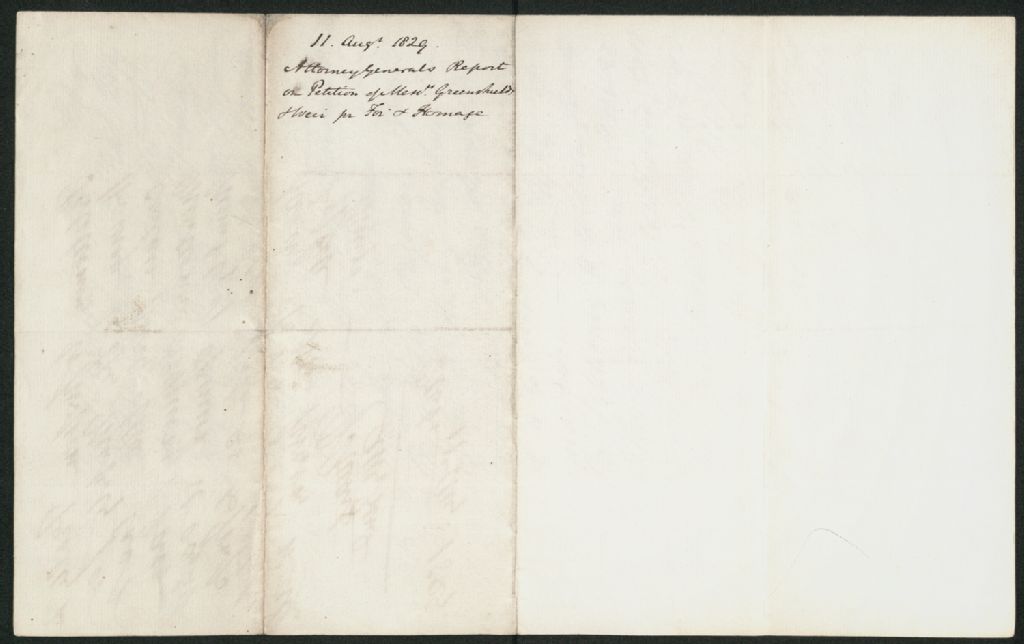 11. Augt. 1829.
Attorney Generals Report
on Petition of Messrs. Greenshields
& Weir pr Foi & Homage